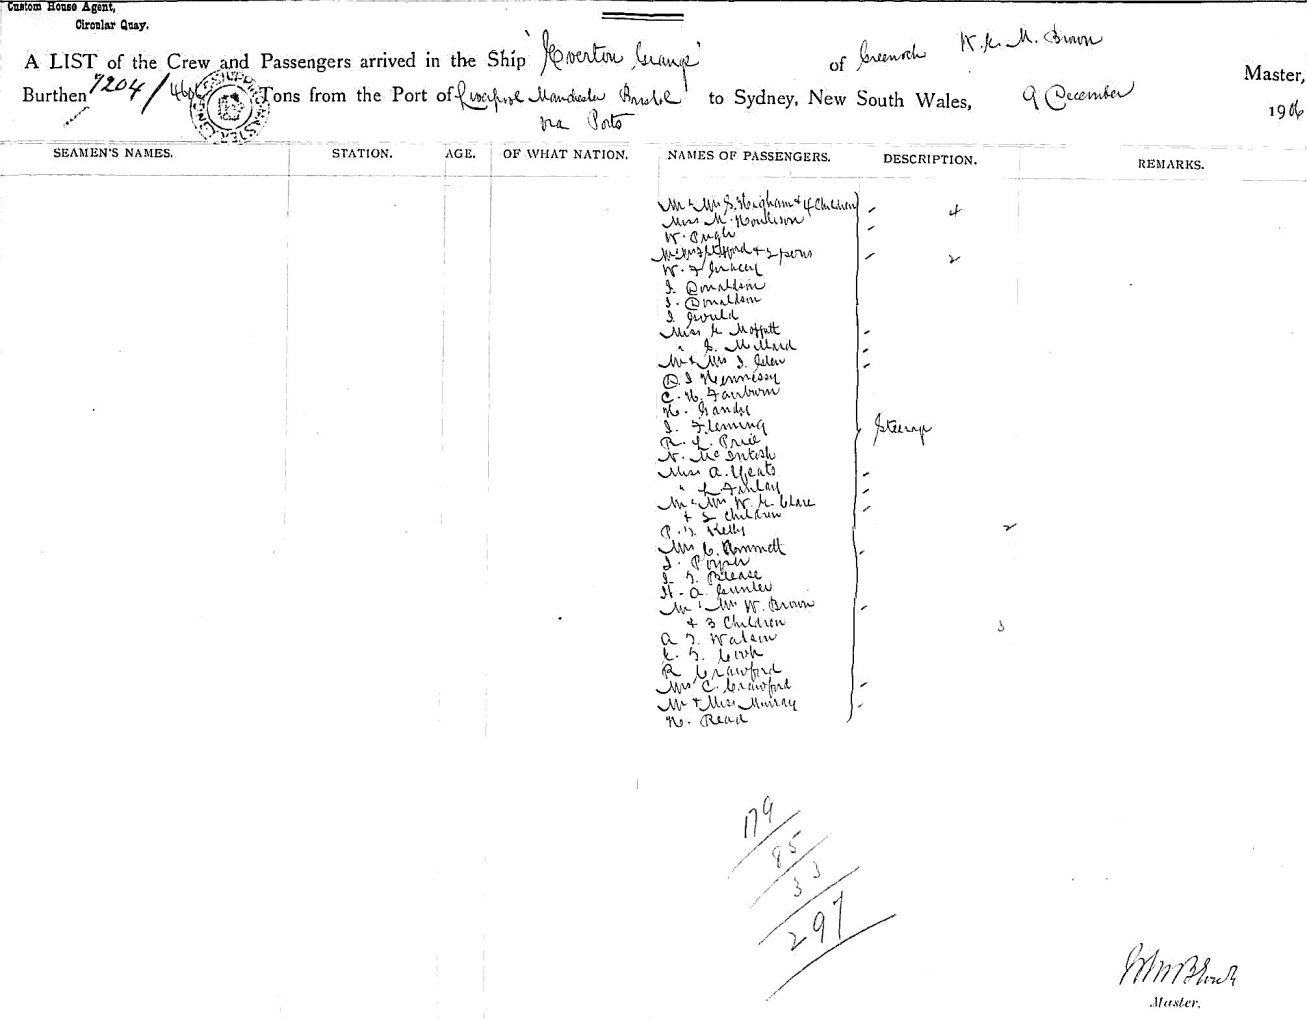 Custom House Agent,
Circular Quay.
A LIST of the Crew and Passengers arrived in the Ship 'Everton Grange' of Greenock W. M. Brown Master,
Burthen 7204/ Tons from the Port of Liverpool Manchester Bristol to Sydney, New South Wales, 9 December 1906
via Ports
SEAMEN'S NAMES. STATION. AGE. OF WHAT NATION. NAMES OF PASSENGERS. DESCRIPTION. REMARKS.
Mr & Mrs S. Heigham & 4 Children 4
Miss M.
W. Pugh
2
W. F.
J. Donaldson
J. Donaldson
J. Gould
Miss Moffatt
" Millard
Mr & Mrs J.
D. J Hennessy
C. H. Fairburn
H. Gandy
J. Fleming Steerage
R. L. Price
N. McIntosh
Miss A. Yeats
" L. Finlay
Mr & Mrs W. Clare
+ 2 Children
P. J. Kelly 2
Mrs C.
J.
J. J. Blease
H. A. Gunter
Mr & Mrs W. Brown
+ 3 Children 3
A. J. Watson
J. Cook
R Crawford
Mrs C. Crawford
Mr & Miss Murray
H. Read
179
85
33
297
Master.